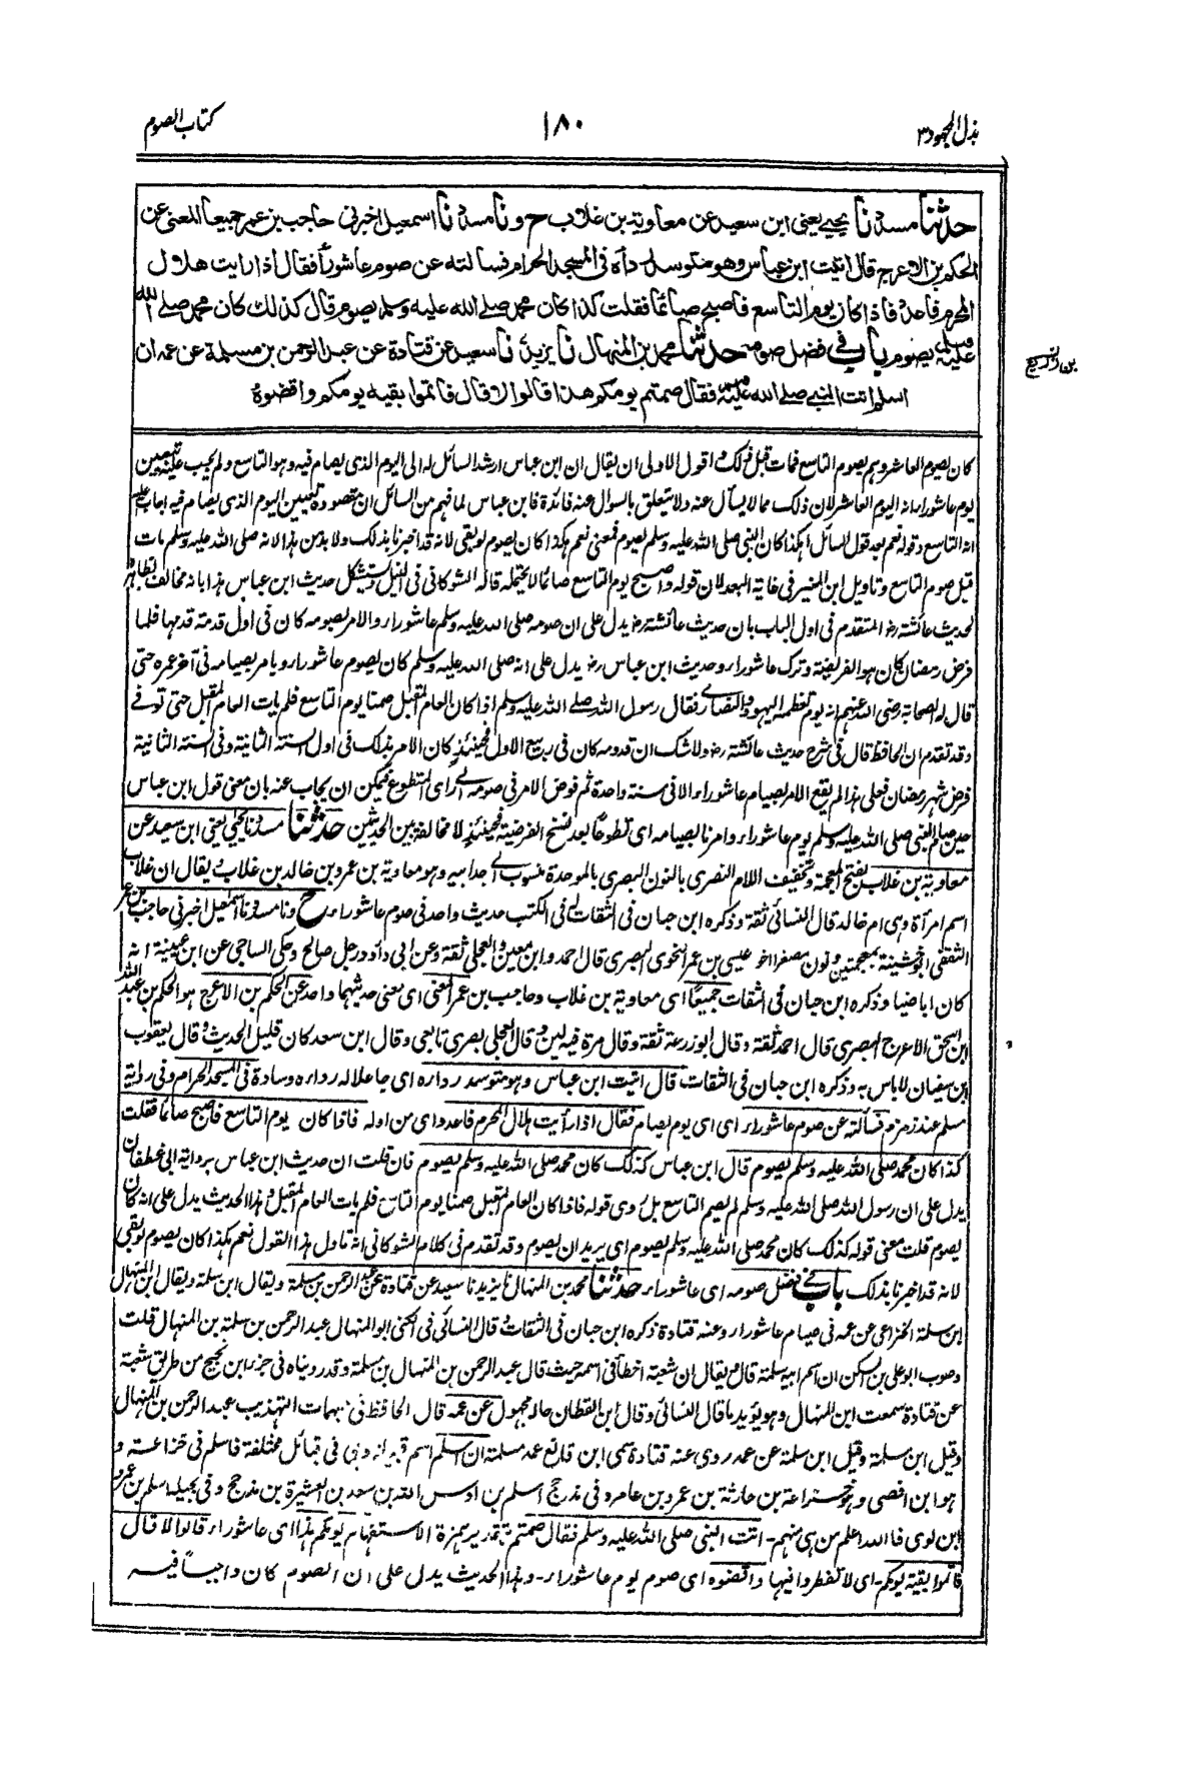 بذل المجهود ٣
١٨٠
كتاب الصوم
حدثنا مسدد نا يحيى يعني ابن سعيد عن معاوية بن غلاب ح ونا مسدد نا اسمعيل اخبرني حاجب بن عمر جميعا المعنى عن
الحكم بن الاعرج قال اتيت ابن عباس وهو متوسد رداءه في المسجد الحرام فسالته عن صوم عاشوراء فقال اذا رايت هلال
المحرم فاعدد فاذا كان يوم التاسع فاصبح صائما فقلت كذا كان محمد صلى الله عليه وسلم يصوم قال كذلك كان محمد صلى الله
عليه وسلم يصوم باب في فضل صومه حدثنا محمد بن المنهال نا يزيد نا سعيد عن قتادة عن عبد الرحمن بن مسلمة عن عمه ان
بن زريع
اسلم اتت النبي صلى الله عليه وسلم فقال صمتم يومكم هذا قالوا لا قال فاتموا بقية يومكم واقضوه
كان يصوم العاشر وهم بصوم التاسع فمات قبل ذلك واقول الاولى ان يقال ان ابن عباس ارشد السائل له الى اليوم الذي يصام فيه وهو التاسع ولم يجب عليه بتعيين
يوم عاشوراء انه اليوم العاشر لان ذلك مما لا يسأل عنه ولا يتعلق بالسوال عنه فائدة فابن عباس لما فهم من السائل ان مقصوده تعيين اليوم الذي يصام فيه اجاب عليه
انه التاسع وقوله نعم بعد قول السائل اهكذا كان النبي صلى الله عليه وسلم يصوم فمعنى نعم هكذا كان يصوم لو بقي لانه قد اخبرنا بذلك ولا بد من هذا لانه صلى الله عليه وسلم مات
قبل صوم التاسع وتاويل ابن المنير في غاية البعد لان قوله واصبح يوم التاسع صائما لا يحتمله قاله الشوكاني في النيل ويستشكل حديث ابن عباس هذا بانه مخالف بظاهره
لحديث عائشة رض المتقدم في اول الباب بان حديث عائشة رض يدل على ان صومه صلى الله عليه وسلم عاشوراء والامر بصومه كان في اول قدمة قدمها فلما
فرض رمضان كان هو الفريضة وترك عاشوراء وحديث ابن عباس رض يدل على انه صلى الله عليه وسلم كان يصوم عاشوراء ويامر بصيامه في آخر عمره حتى
قال له الصحابة رضي الله عنهم انه يوم تعظمه اليهود والنصارى فقال رسول الله صلى الله عليه وسلم اذا كان العام المقبل صمنا يوم التاسع فلم يات العام المقبل حتى توفي
وقد تقدم ان الحافظ قال في شرح حديث عائشة رض ولا شك ان قدومه كان في ربيع الاول فحينئذ كان الامر بذلك في اول السنة الثانية وفي السنة الثانية
فرض شهر رمضان فعلى هذا لم يقع الامر بصيام عاشوراء الا في سنة واحدة ثم فوض الامر في صومه الى رأي المتطوع فيمكن ان يجاب عنه بان معنى قول ابن عباس
حين صام النبي صلى الله عليه وسلم يوم عاشوراء وامرنا بصيامه اي تطوعا بعد نسخ الفرضية فحينئذ لا مخالفة بين الحديثين حدثنا مسدد نا يحيى يعني ابن سعيد عن
معاوية بن غلاب بفتح المعجمة وتخفيف اللام النصري بالنون البصري بالموحدة منسوب الى اجدابيه وهو معاوية بن عمرو بن خالد بن غلاب يقال ان غلاب
اسم امرأة وهي ام خالد قال النسائي ثقة وذكره ابن حبان في الثقات له في الكتب حديث واحد في صوم عاشوراء ح ونا مسدد نا اسمعيل اخبرني حاجب بن عمر
الثقفي ابو خشينة بمعجمتين ونون مصغرا اخو عيسى بن عمر النحوي البصري قال احمد وابن معين والعجلي ثقة وعن ابي داود رجل صالح وحكى الساجي عن ابن عيينة انه
كان اباضيا وذكره ابن حبان في الثقات جميعا اي معاوية بن غلاب وحاجب بن عمر المعنى اي معنى حديثهما واحد عن الحكم بن الاعرج هو الحكم بن عبد الله
ابن اسحق الاعرج البصري قال احمد ثقة وقال ابو زرعة ثقة وقال مرة فيه لين وقال العجلي بصري تابعي وقال ابن سعد كان قليل الحديث وقال يعقوب
ابن سفيان لا باس به وذكره ابن حبان في الثقات قال اتيت ابن عباس وهو متوسد رداءه اي جاعلا له رداءه وسادة في المسجد الحرام وفي رواية
مسلم عند زمزم فسألته عن صوم عاشوراء اي اي يوم يصام فقال اذا رأيت هلال المحرم فاعدد اي من اوله فاذا كان يوم التاسع فاصبح صائما فقلت
كذا كان محمد صلى الله عليه وسلم يصوم قال ابن عباس كذلك كان محمد صلى الله عليه وسلم يصوم فان قلت ان حديث ابن عباس برواية ابي غطفان
يدل على ان رسول الله صلى الله عليه وسلم لم يصم التاسع بل روي قوله فاذا كان العام المقبل صمنا يوم التاسع فلم يات العام المقبل وهذا الحديث يدل على انه كان
يصوم قلت معنى قوله كذلك كان محمد صلى الله عليه وسلم يصوم اي يريد ان يصوم وقد تقدم في كلام الشوكاني انه تاول هذا القول نعم هكذا كان يصوم لو بقي
لانه قد اخبرنا بذلك باب في فضل صومه اي عاشوراء حدثنا محمد بن المنهال نا يزيد نا سعيد عن قتادة عن عبد الرحمن بن مسلمة ويقال ابن سلمة ويقال ابن المنهال
ابن سلمة الخزاعي عن عمه في صيام عاشوراء وعنه قتادة ذكره ابن حبان في الثقات قال النسائي في الكنى ابو المنهال عبد الرحمن بن سلمة بن المنهال قلت
وصوب ابو علي بن السكن ان اسم ابيه سلمة قال ويقال ان شعبة اخطأ في اسمه حيث قال عبد الرحمن بن المنهال بن مسلمة وقد رويناه في جزء ابن نجيح من طريق شعبة
عن قتادة سمعت ابن المنهال وهو يؤيد ما قال النسائي وقال ابن القطان حاله مجهول عن عمه قال الحافظ في مبهمات التهذيب عبد الرحمن بن المنهال
وقيل ابن سلمة وقيل ابن سلمة عن عمه روى عنه قتادة سمى ابن قانع عمه مسلمة ان اسلم اسم قبيلة وهي في قبائل مختلفة فاسلم في خزاعة و
هو ابن افصى وهو خزاعة بن حارثة بن عمرو بن عامر وفي مذحج اسلم بن اوس الله بن سعد بن العشيرة بن مذحج وفي بجيلة اسلم بن عمرو
ابن لوي فالله اعلم من هي منهم - اتت النبي صلى الله عليه وسلم فقال صمتم بتقدير همزة الاستفهام يومكم هذا اي عاشوراء قالوا لا قال
فاتموا بقية يومكم - اي لا تفطروا فيها واقضوه اي صوم يوم عاشوراء - وهذا الحديث يدل على ان الصوم كان واجبا فيه